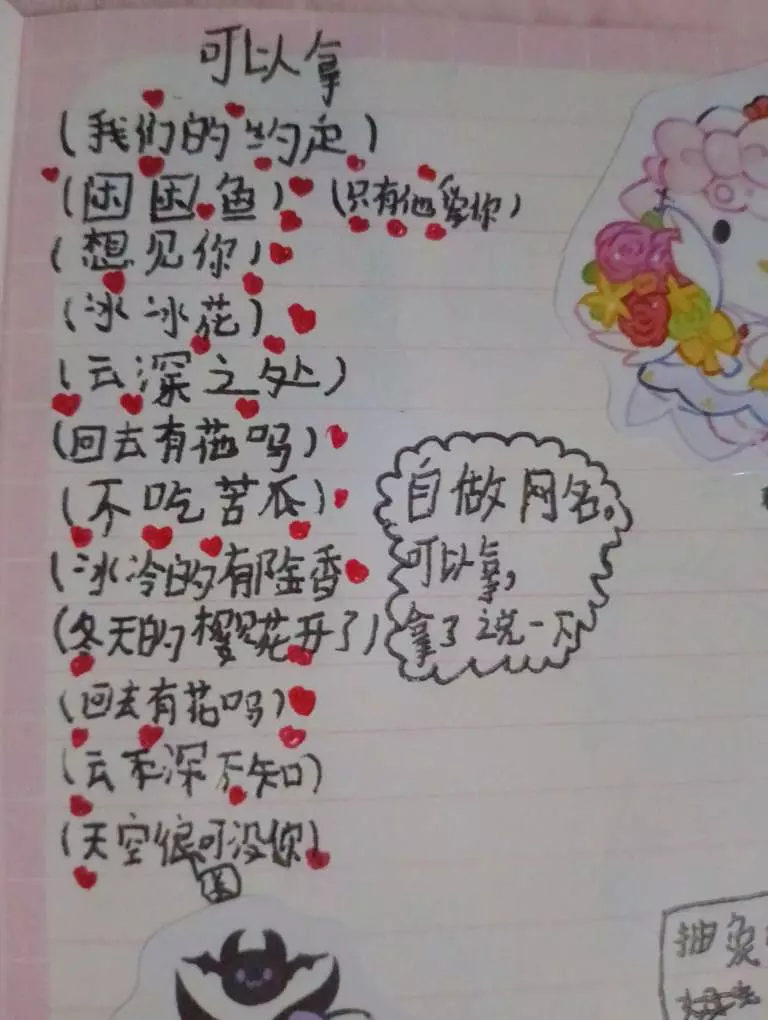 可以拿
(我们的约定)
(困困鱼) (只有他爱你)
(想见你)
(冰冰花)
(云深之处)
(回去有花吗)
(不吃苦瓜)
(冰冷的有阵香
(冬天的樱花开了)
(回去有花吗)
(云不深不知)
(天空很可没你)
蓝
自做网名。
可以拿,
拿了说一下
抽奖